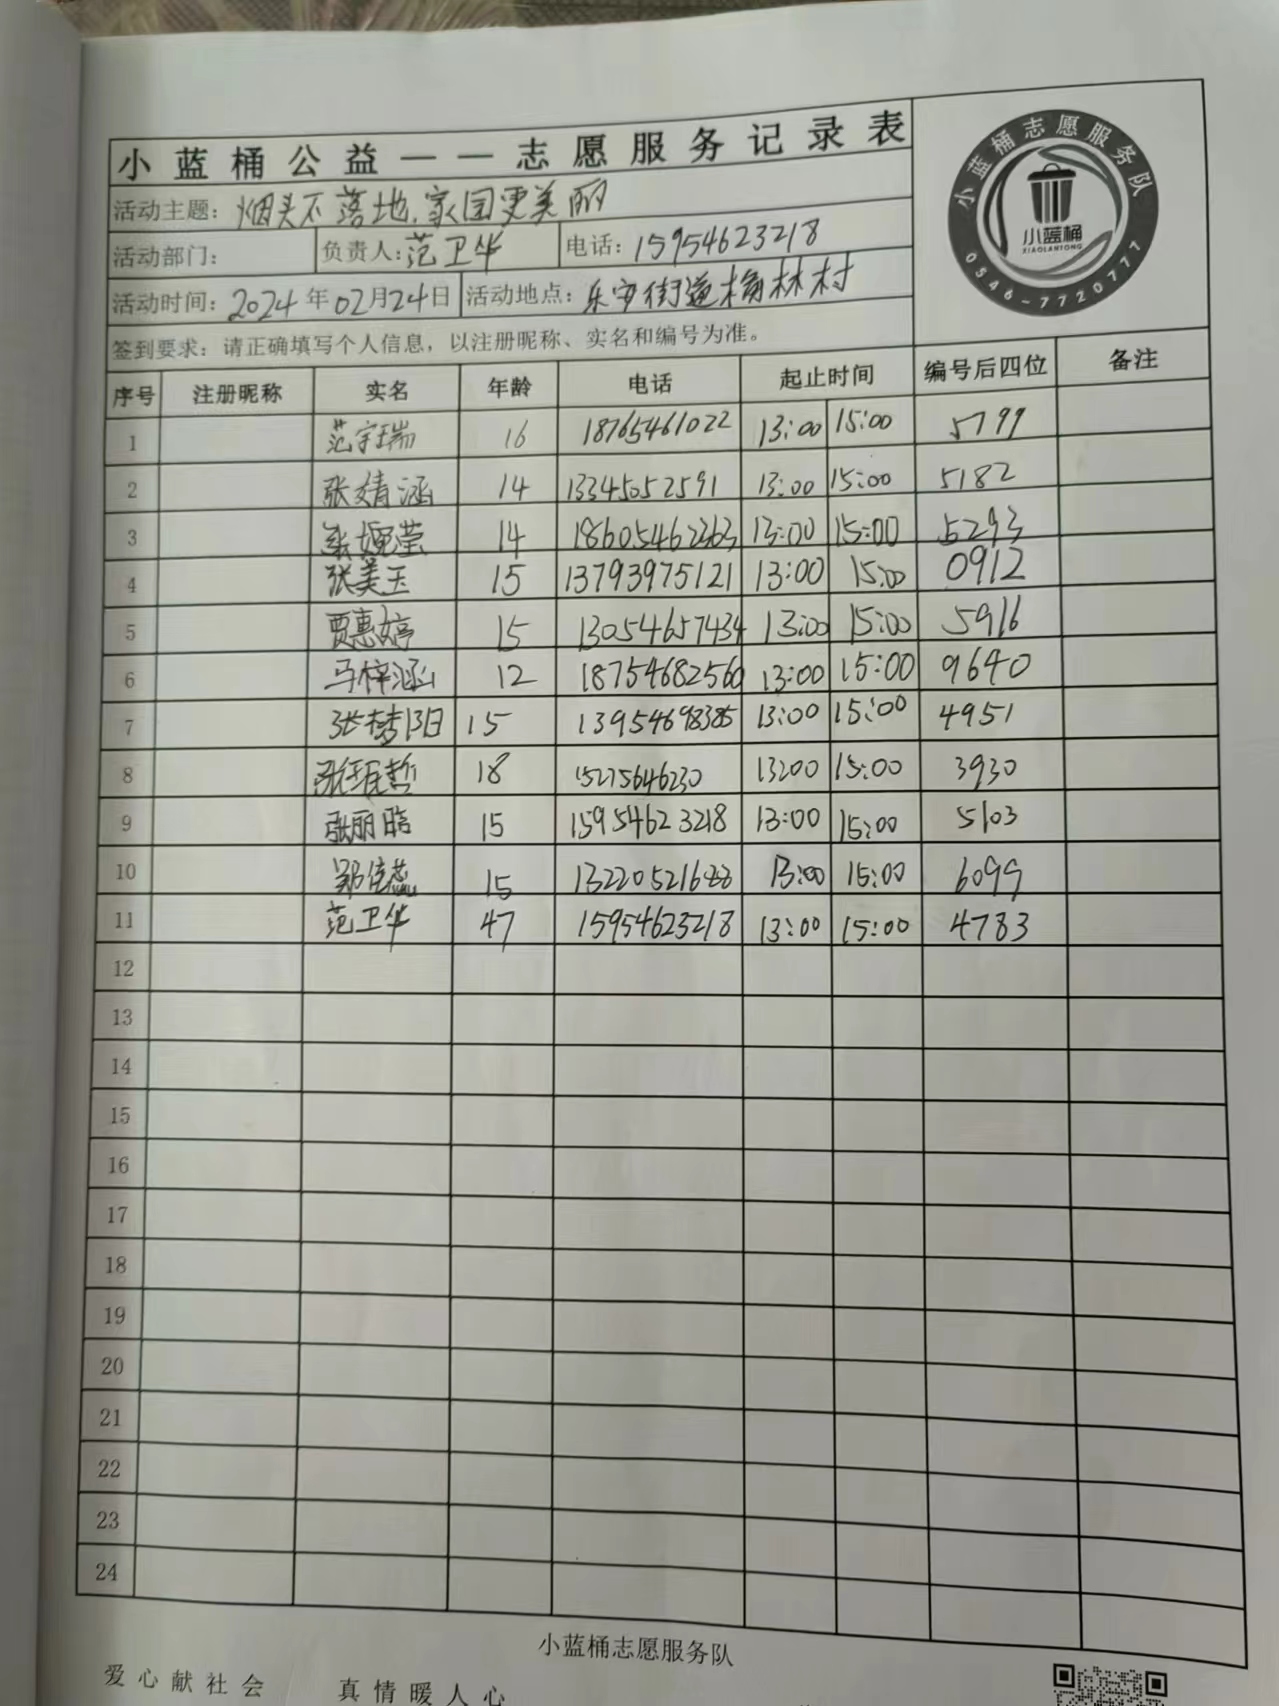 小蓝桶公益——志愿服务记录表
小蓝桶志愿服务队
小蓝桶
XIAOLANTONG
0546-7720777
活动主题：烟头不落地，家园更美丽
活动部门： 负责人：范卫华 电话：15954623218
活动时间：2024年02月24日 活动地点：乐安街道榆林村
签到要求：请正确填写个人信息，以注册昵称、实名和编号为准。
序号 注册昵称 实名 年龄 电话 起止时间 编号后四位 备注
1 范宇瑞 16 18765461022 13:00 15:00 5799
2 张婧涵 14 13345052591 13:00 15:00 5182
3 张婉莹 14 18605462363 13:00 15:00 5293
4 张美玉 15 13793975121 13:00 15:00 0912
5 贾惠婷 15 13054657434 13:00 15:00 5916
6 马梓涵 12 18754682560 13:00 15:00 9640
7 张梦 15 13954698385 13:00 15:00 4951
8 哲 18 15275646230 13:00 15:00 3930
9 张丽晗 15 15954623218 13:00 15:00 5103
10 郑佳蕊 15 13:00 15:00 6099
11 范卫华 47 15954623218 13:00 15:00 4783
12
13
14
15
16
17
18
19
20
21
22
23
24
小蓝桶志愿服务队
爱心献社会 真情暖人心